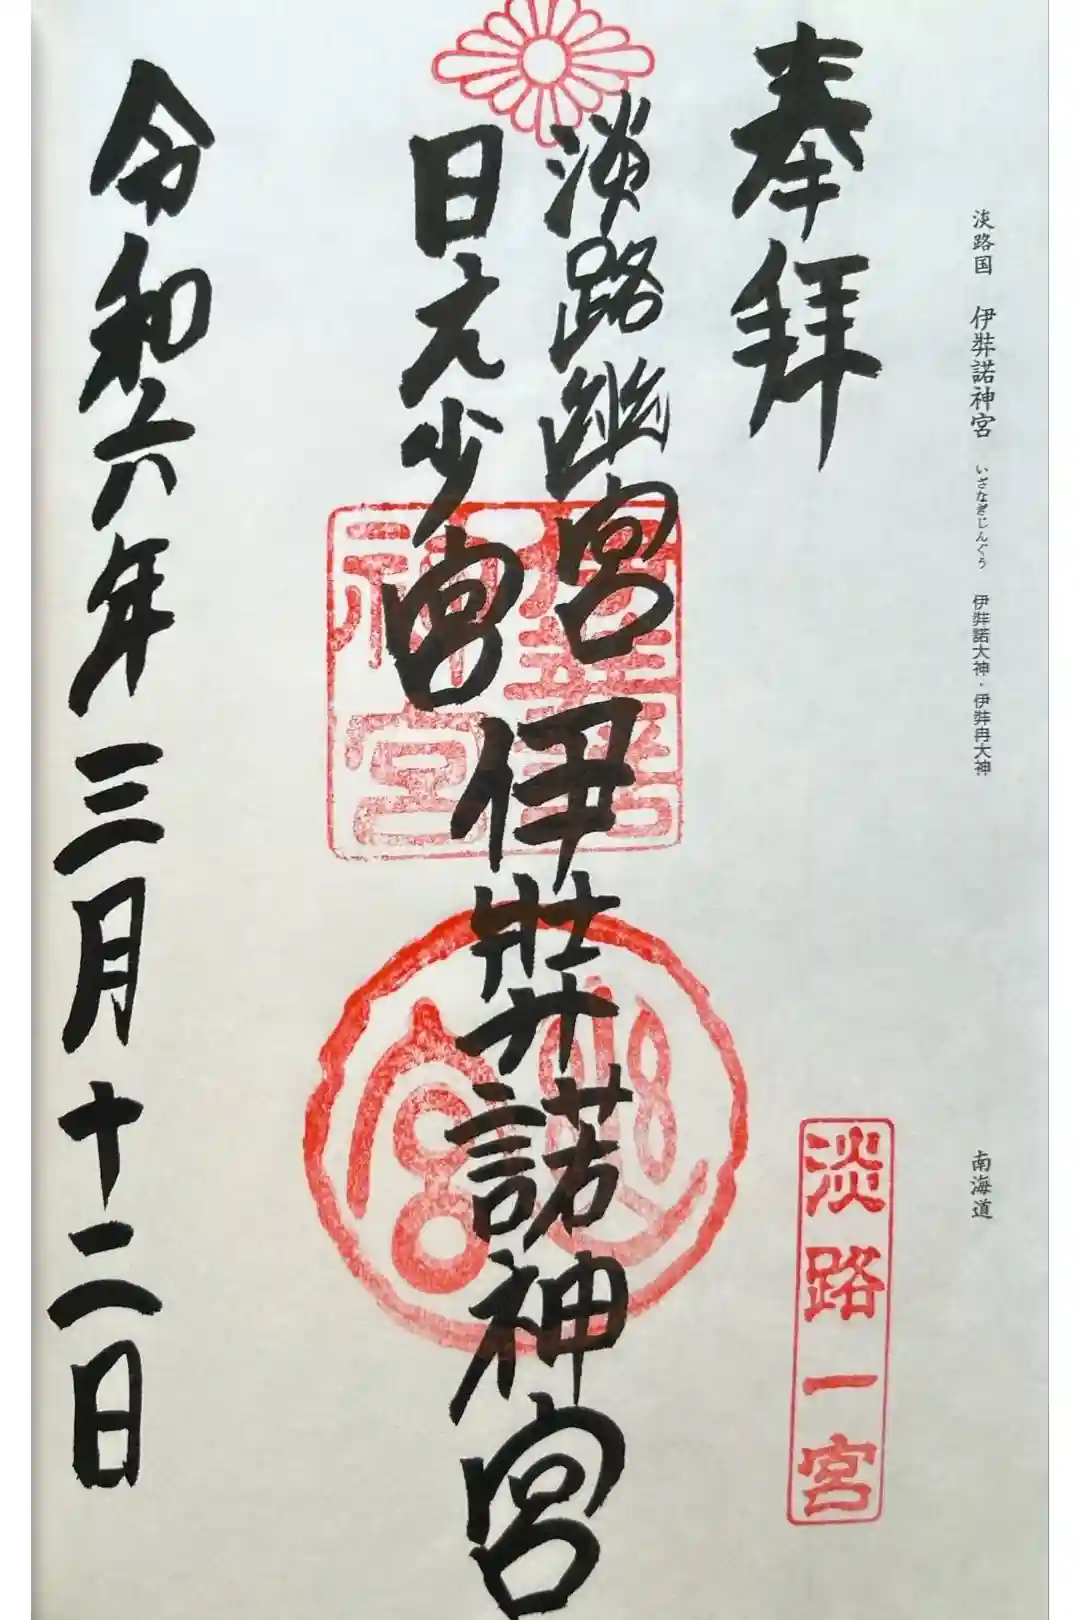 淡路国 伊弉諾神宮 いざなぎじんぐう 伊弉諾大神・伊弉冉大神 南海道
奉拝
淡路一宮
淡路幽宮
日之少宮
伊弉諾神宮
伊弉諾
神宮
幽
宮
令和六年三月十二日